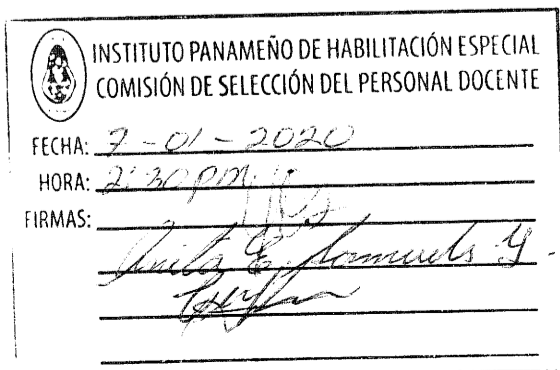 INSTITUTO PANAMEÑO DE HABILITACIÓN ESPECIAL
COMISIÓN DE SELECCIÓN DEL PERSONAL DOCENTE
FECHA: 7-01-2020
HORA: 2:30 pm
FIRMAS:
Anita E. Samuels G.